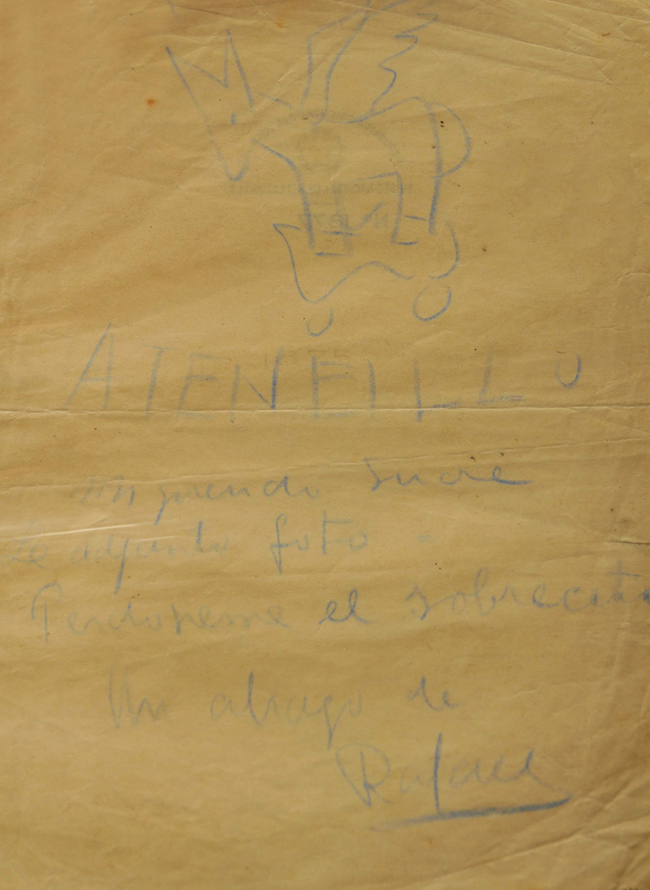 ATENEILLO
Mi querido Sucre
Le adjunto foto =
Perdoneme el sobrecito
Un abrazo de
Rafael